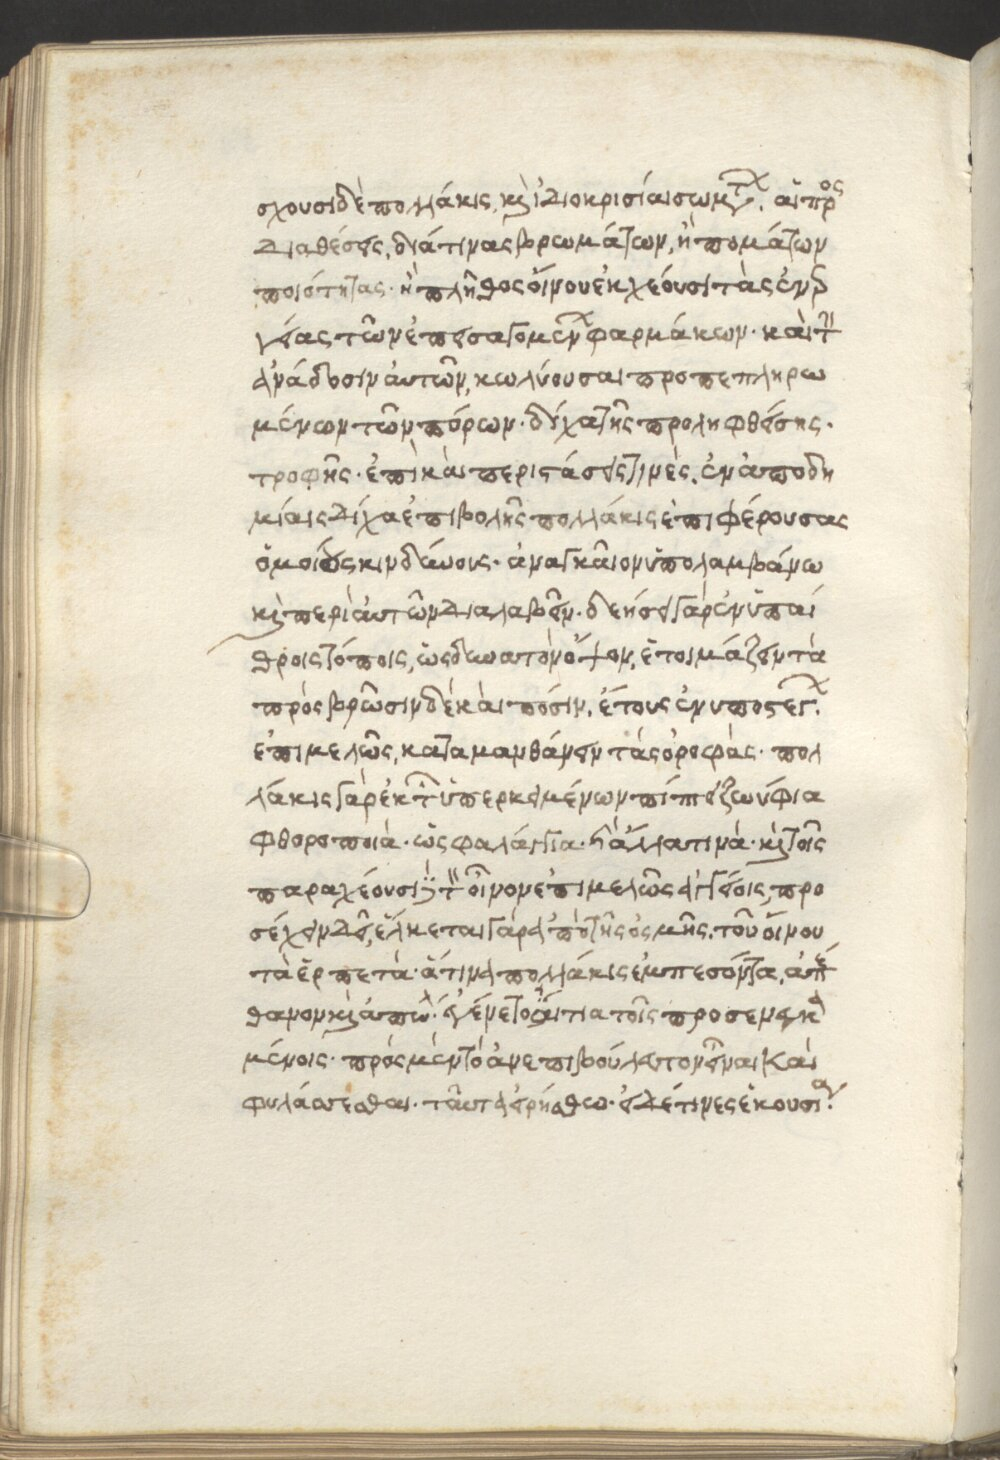 σχουσι δὲ πολλάκις, καὶ ἰδιοκρισίαι σωμάτων. αἱ πρὸς
διαθέσεις, διά τινας βρωμάτων, ἢ πομάτων
ποιότητας· ἢ πλῆθος οἴνου ἐκλεόυσι τὰς ἐνερ
γείας τῶν ἐπεισαγομένων φαρμάκων· καὶ τὴν
ἀνάδοσιν ἀυτῶν, κωλύουσαι προπεπληρω
μένων τῶν πόρων· δίχα τῆς προληφθείσης·
τροφῆς· ἐπὶ καὶ περιστάσεις τινὲς, ἐν ἀποδη
μίαις δίχα ἐπιβολῆς πολλάκις ἐπιφέρουσας
ὁμοίους κινδύνους· ἀναγκαῖον ὑπολαμβάνω
καὶ περὶ ἀυτῶν διαλαβεῖν· δεήσει γὰρ ἐν ὑπαί
θροις τόποις, ὡς δυνατὸν ὄψον, ἑτοιμάζειν τὰ
πρὸς βρῶσιν δὲ καὶ πόσιν, ἐ τους ἐν υποστέγων.
ἐπιμελῶς, καταμανθάνειν τὰς ὀροφάς· πολ
λάκις γὰρ ἐκ τῶν ὑπερκειμένων πίπτει ζωύφια
φθοροποιά· ὡς φαλάγγια· ἢ ἄλλα τινά· καὶ τοῖς
παραχέουσι δὲ τὸν οἶνον ἐπιμελῶς ἀγγείοις, προ
σέχειν δεῖ, ἕλκεται γὰρ ἀπὸ τῆς ὀσμῆς τοῦ οἴνου
τὰ ἑρπετὰ· ἅτινα πολλάκις ἐμπεσόντα, ἀπέ
θανον καὶ ἀπωλ. ἐγένετο αἴτια τοῖς προσενεγκα
μένοις· πρὸς μέν τὸ ἀνεπιβούλευτον εἶναι καὶ
φυλάσσεσθαι· ταῦτα εἰρήσθω· εἰ δέ τινες ἑκουσίαν.